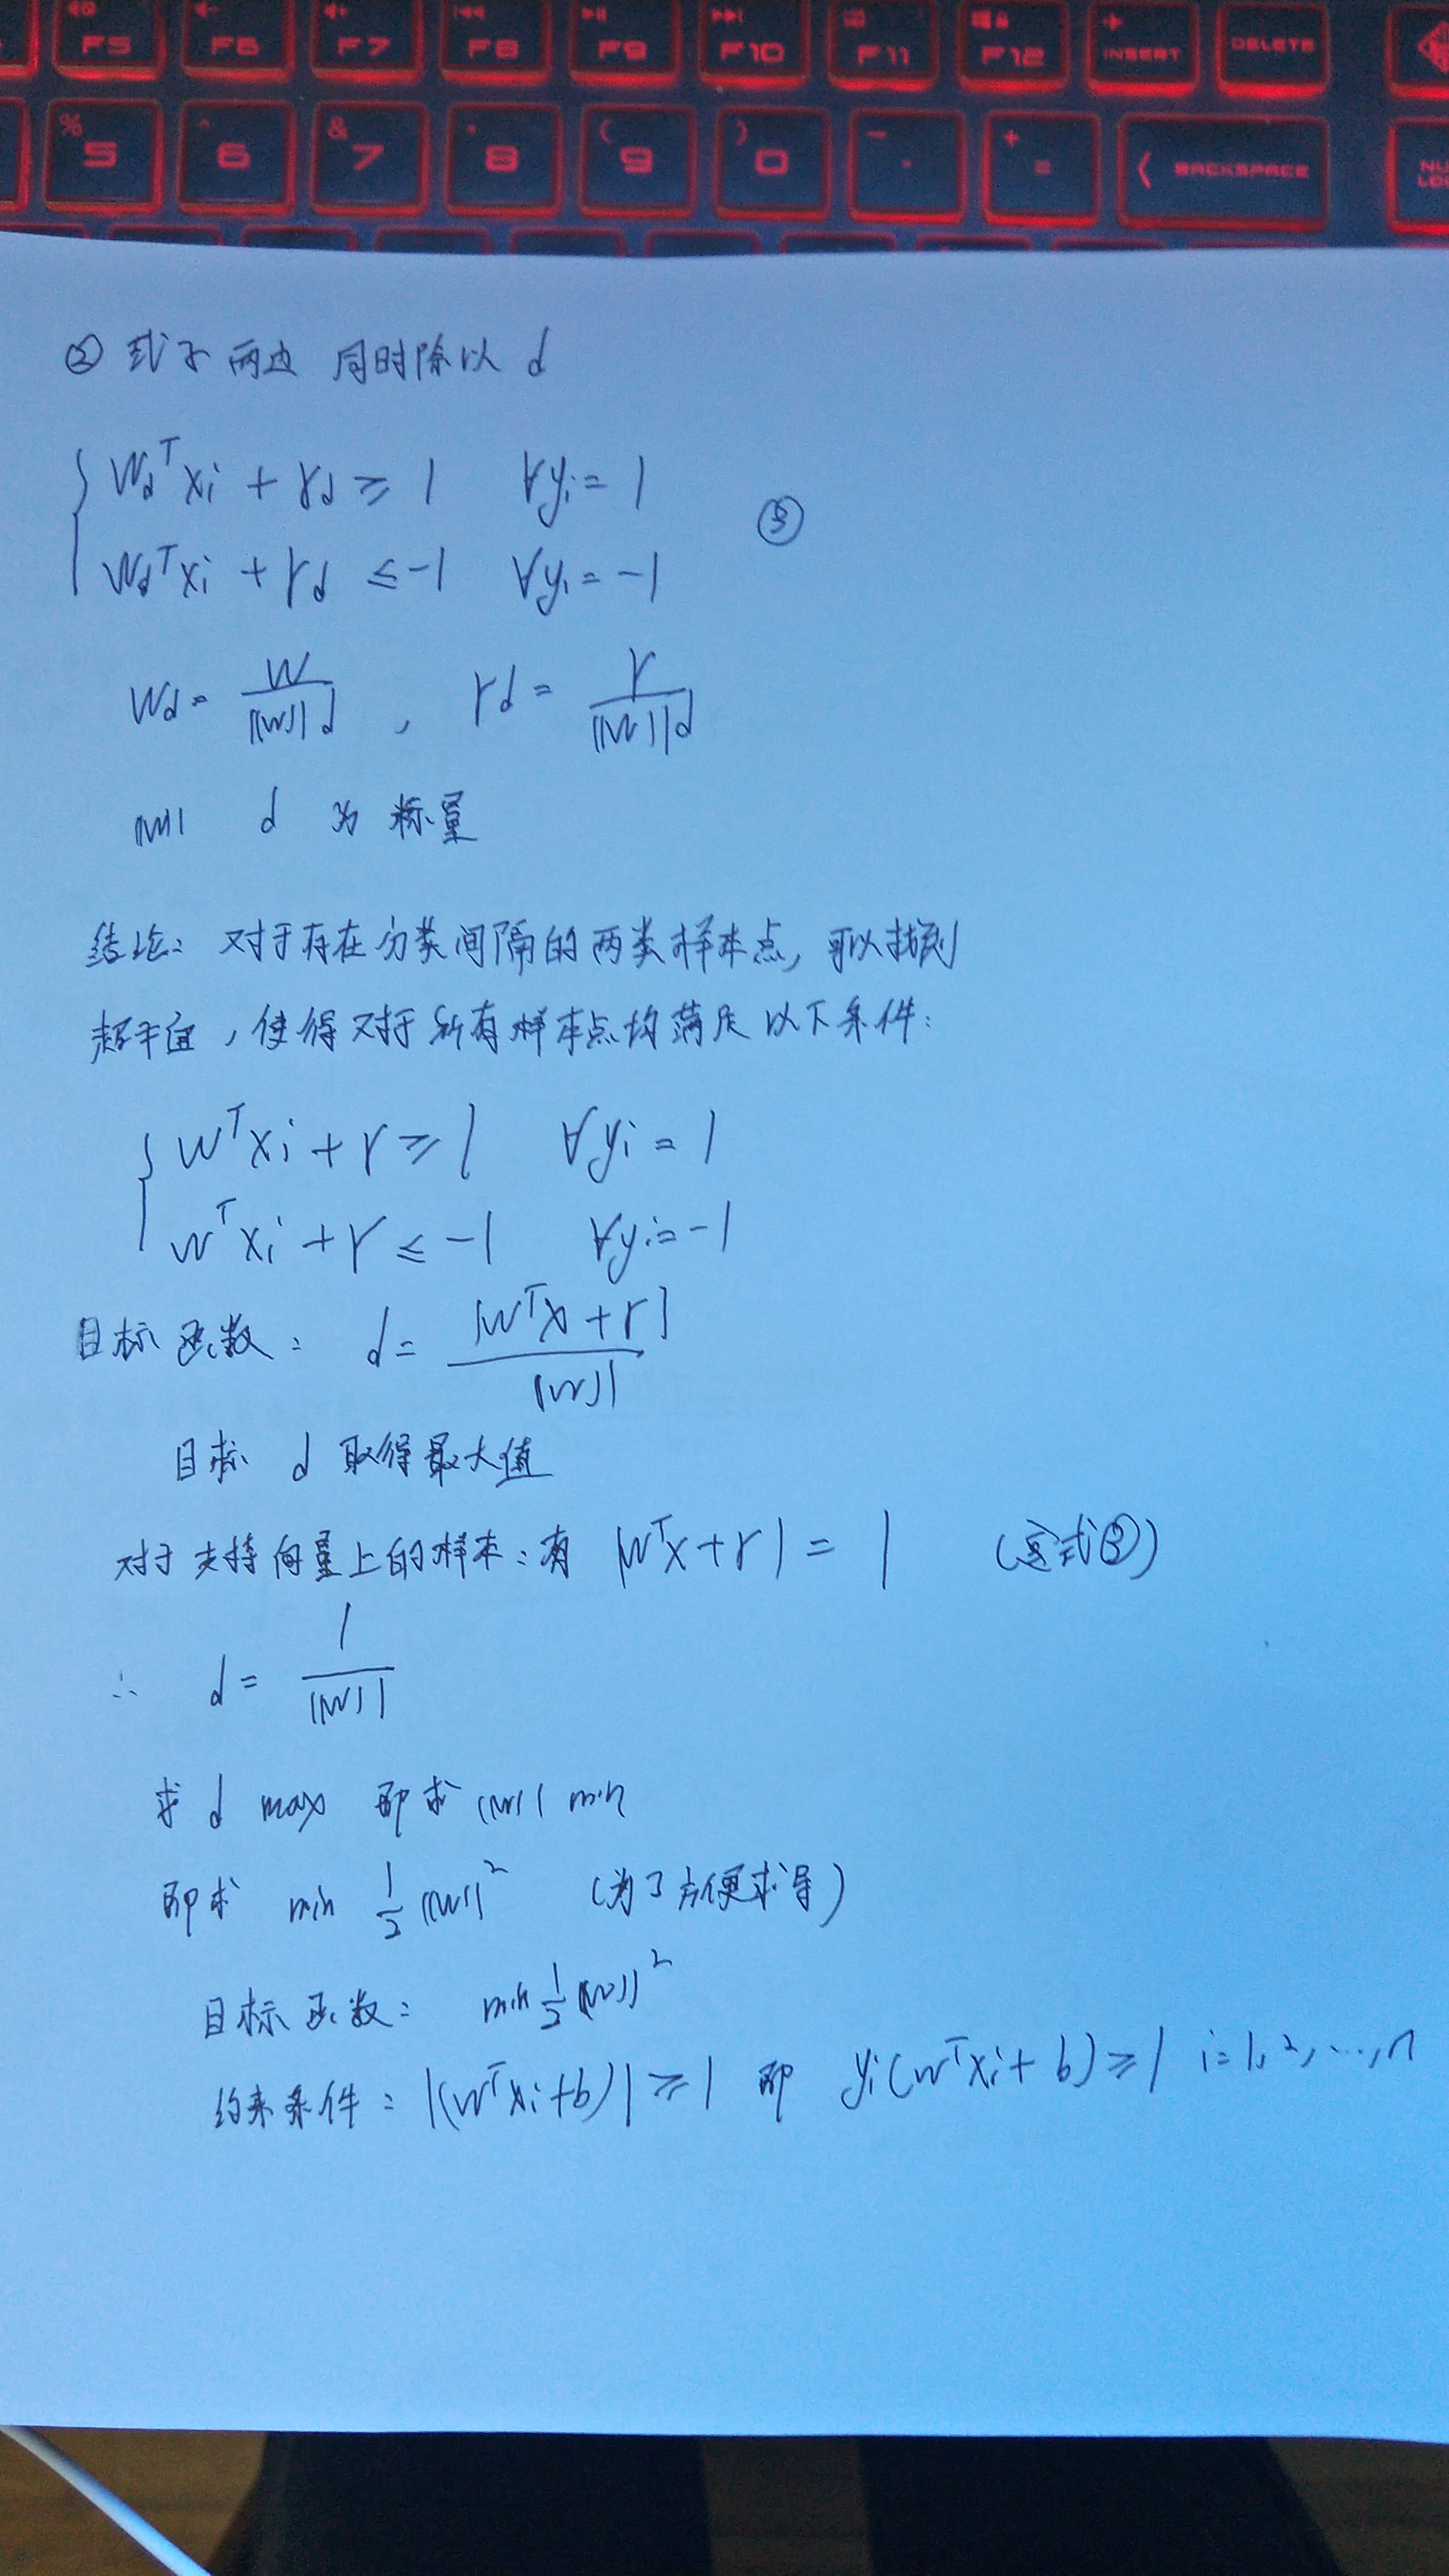 F5 F6 F7 F8 F9 F10 F11 F12 INSERT DELETE
% 5 ^ 6 & 7 * 8 ( 9 ) 0 - + = BACKSPACE NU
LO
② 式子两边 同时除以 d
{ Wd^T xi + rd ≥ 1 ∀yi = 1
Wd^T xi + rd ≤ -1 ∀yi = -1 ③
Wd = W/(||W|| d) , rd = r/(||W|| d)
||W|| d 为标量
结论: 对于存在分类间隔的两类样本点, 可以找到
超平面, 使得对于所有样本点均满足以下条件:
{ W^T xi + r ≥ 1 ∀yi = 1
W^T xi + r ≤ -1 ∀yi = -1
目标函数: d = |W^T x + r| / ||W||
目标 d 取得最大值
对于支持向量上的样本: 有 |W^T x + r| = 1 (③)
∴ d = 1/||W||
求 d max 即求 ||W|| min
即求 min 1/2 ||W||² (为了方便求导)
目标函数: min 1/2 ||W||²
约束条件: |(W^T xi + b)| ≥ 1 即 yi(W^T xi + b) ≥ 1 i = 1, 2, ..., n